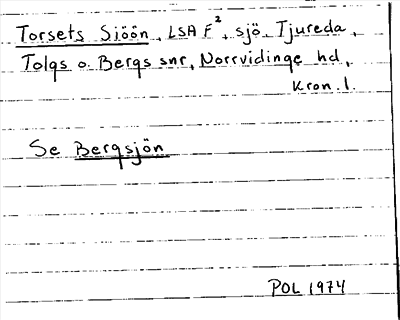 Torsets Siöön, LSA F², sjö Tjureda,
Tolgs o. Bergs snr, Norrvidinge hd,
Kron. l.
Se Bergsjön
POL 1974